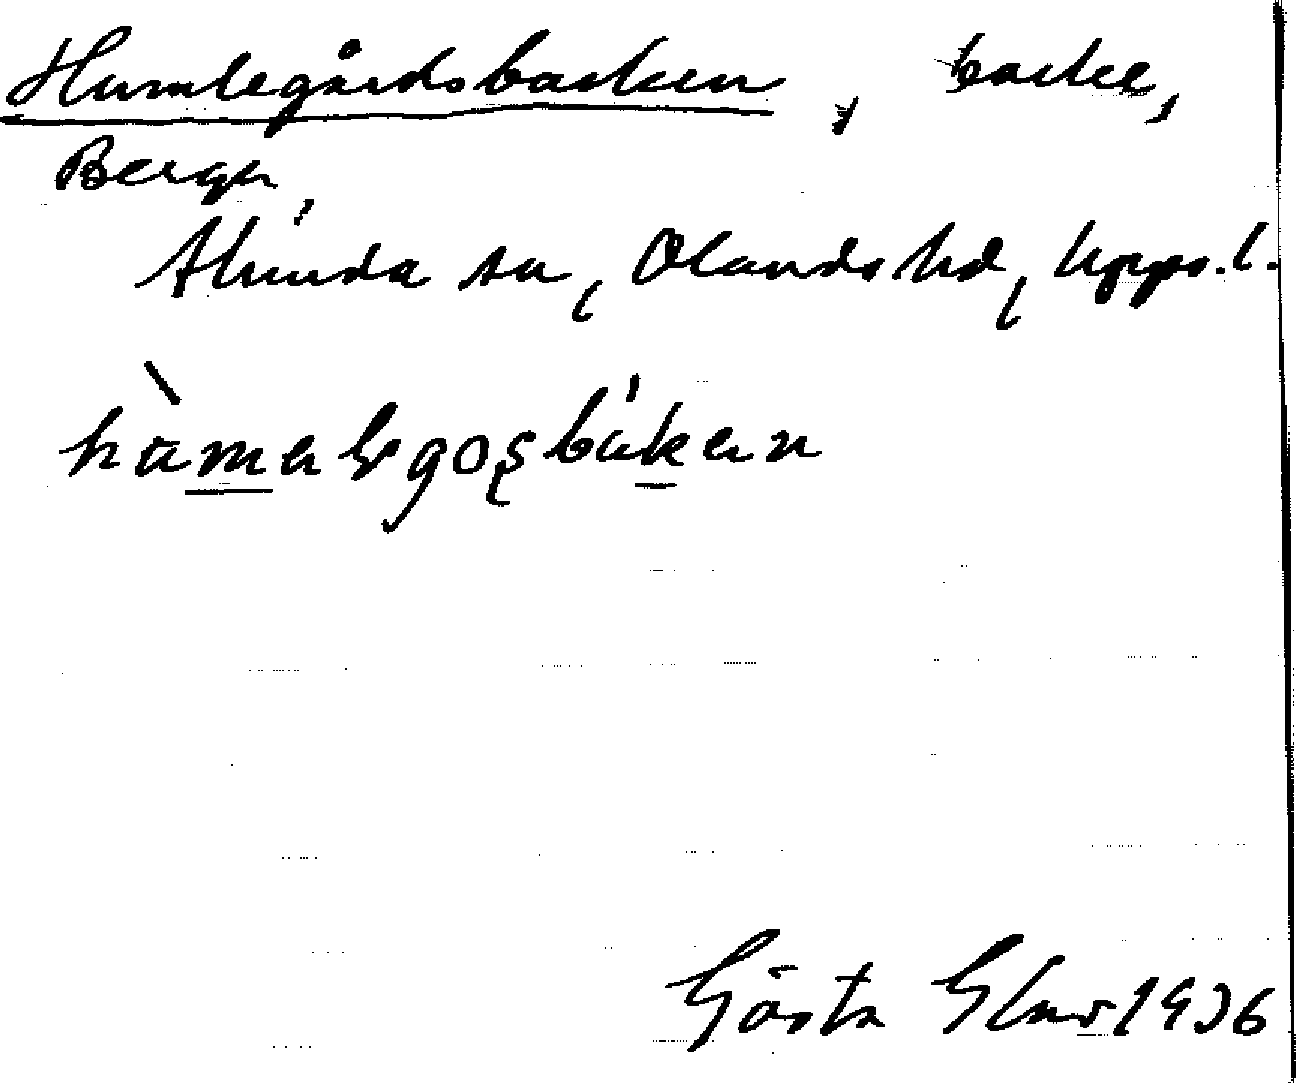 Humlegårdsbacken, backe,
Berga,
Alunda sn, Olands hd, Upps. l.
Gösta 1936